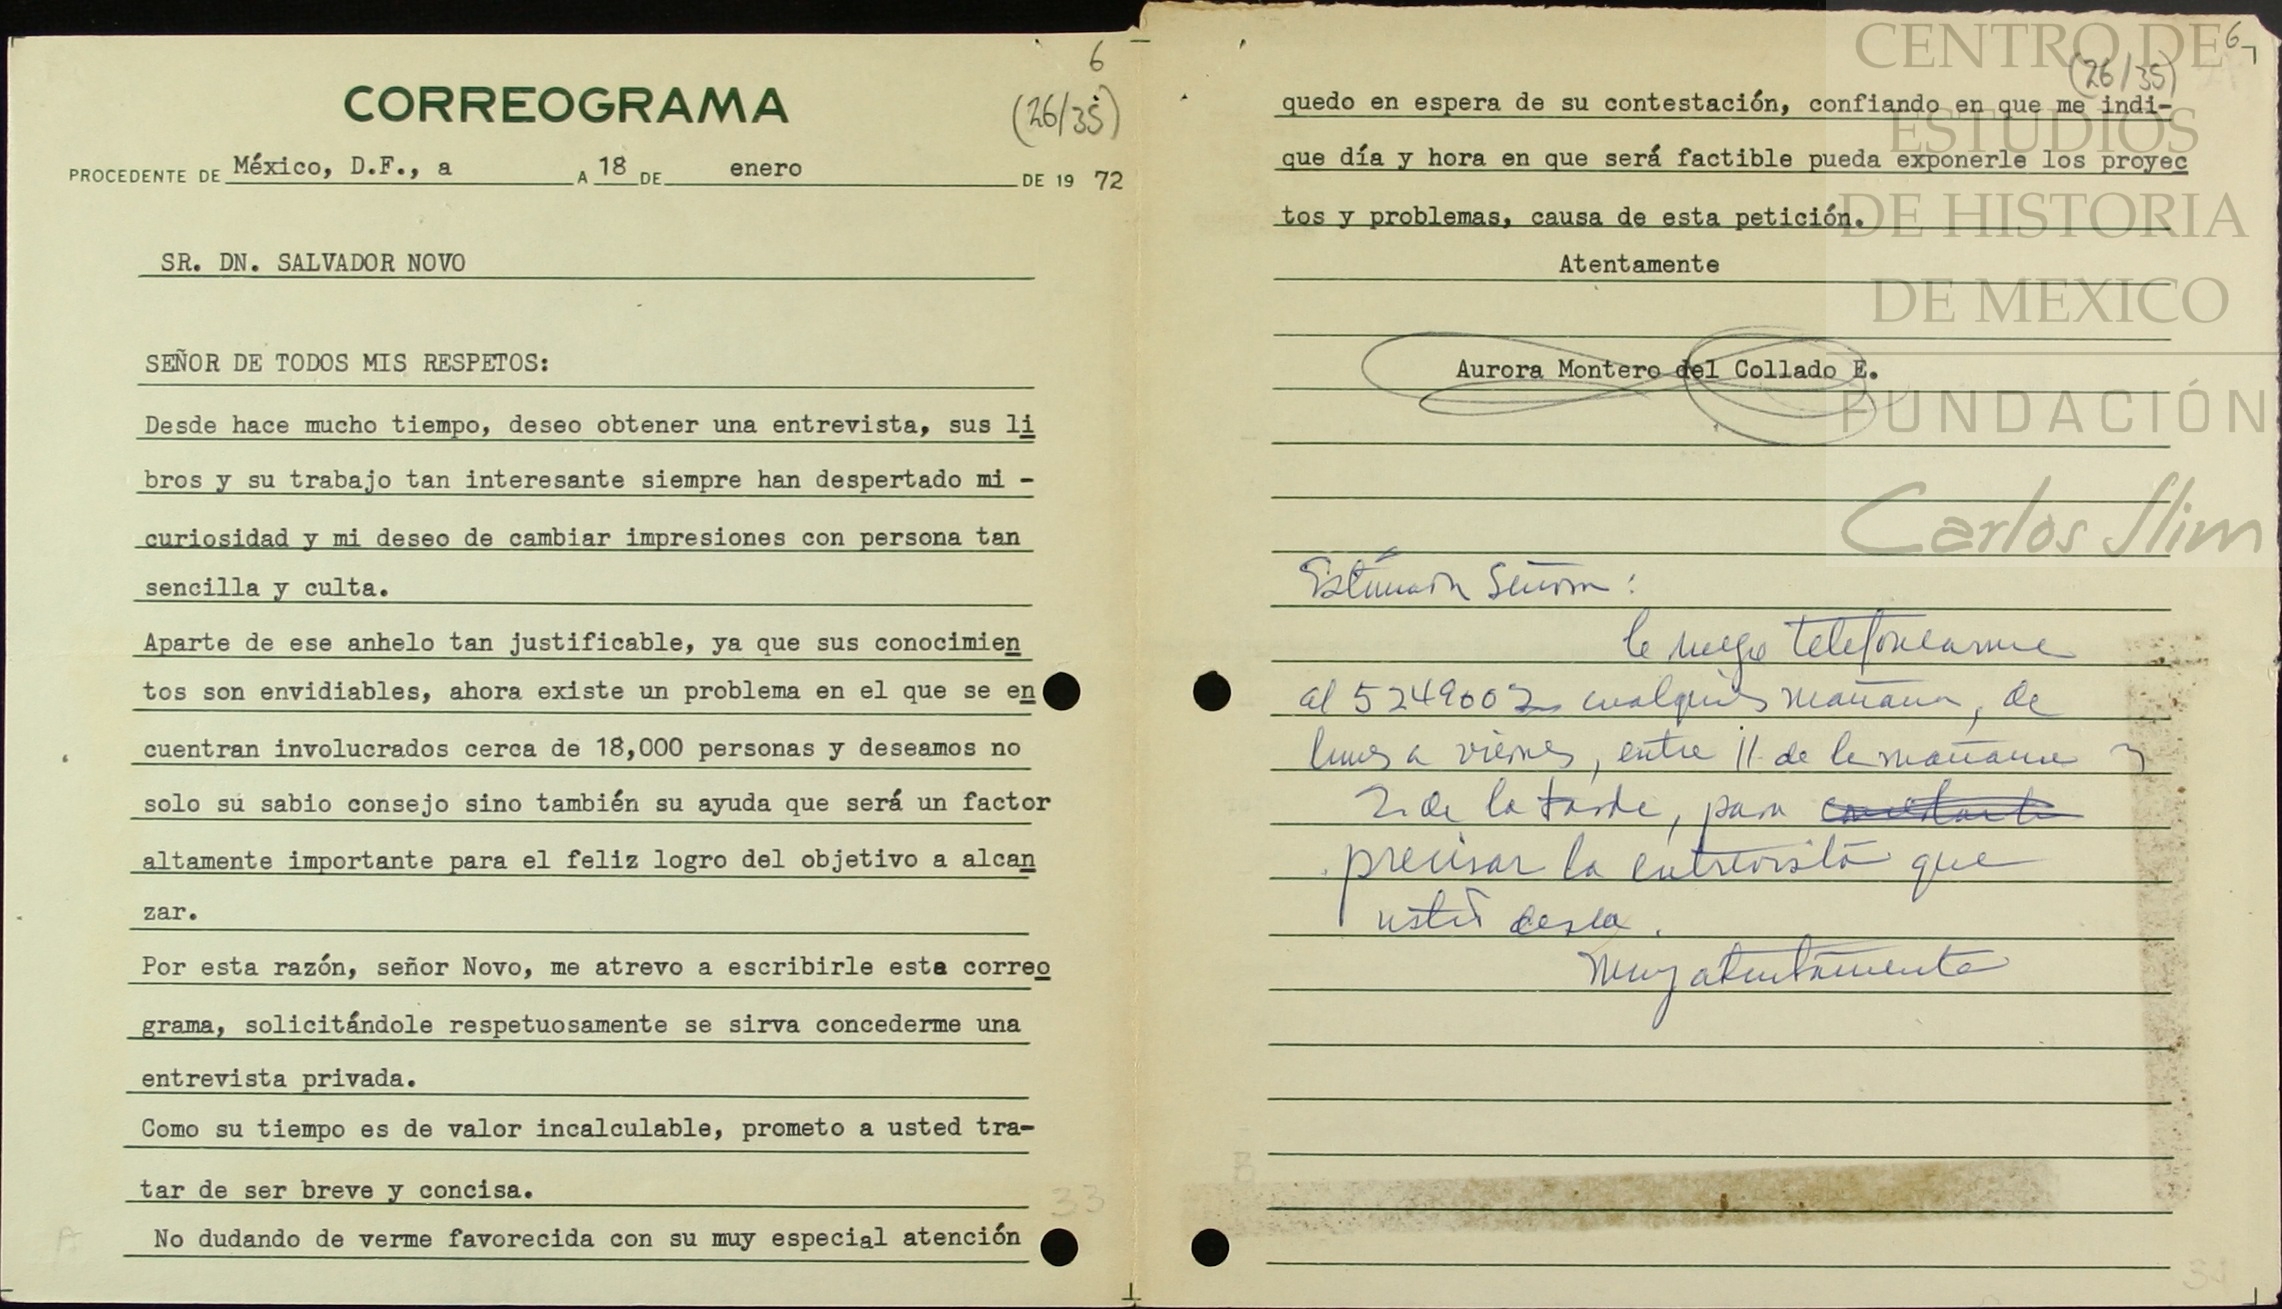 6
CORREOGRAMA
(26/35)
PROCEDENTE DE México, D.F., a A 18 DE enero DE 19 72
SR. DN. SALVADOR NOVO
SEÑOR DE TODOS MIS RESPETOS:
Desde hace mucho tiempo, deseo obtener una entrevista, sus li
bros y su trabajo tan interesante siempre han despertado mi -
curiosidad y mi deseo de cambiar impresiones con persona tan
sencilla y culta.
Aparte de ese anhelo tan justificable, ya que sus conocimien
tos son envidiables, ahora existe un problema en el que se en
cuentran involucrados cerca de 18,000 personas y deseamos no
solo su sabio consejo sino también su ayuda que será un factor
altamente importante para el feliz logro del objetivo a alcan
zar.
Por esta razón, señor Novo, me atrevo a escribirle este correo
grama, solicitándole respetuosamente se sirva concederme una
entrevista privada.
Como su tiempo es de valor incalculable, prometo a usted tra-
tar de ser breve y concisa.
No dudando de verme favorecida con su muy especial atención
33
6
(26/35)
quedo en espera de su contestación, confiando en que me indi-
que día y hora en que será factible pueda exponerle los proyec
tos y problemas, causa de esta petición.
Atentamente
Aurora Montero del Collado E.
Estimada Señora:
le ruego telefonearme
al 5249602 cualquier mañana, de
lunes a viernes, entre 11 de la mañana y
2 de la tarde, para
precisar la entrevista que
usted desea.
Muy atentamente
CENTRO DE
ESTUDIOS
DE HISTORIA
DE MEXICO
FUNDACIÓN
Carlos Slim